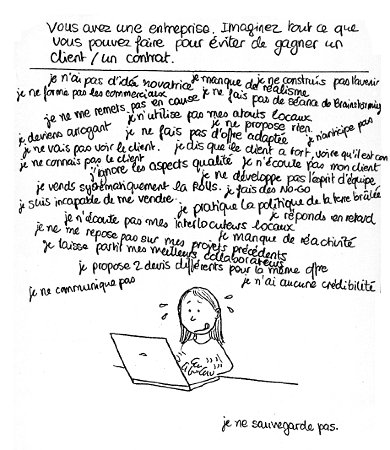 Vous avez une entreprise. Imaginez tout ce que
vous pouvez faire pour éviter de gagner un
client / un contrat.
je n'ai pas d'idée novatrice je manque de réalisme je ne construis pas l'avenir
je ne forme pas les commerciaux je ne fais pas de séance de Brainstorming
je ne me remets pas en cause je n'utilise pas mes atouts locaux
je deviens arrogant je ne fais pas d'offre adaptée je ne propose rien je n'anticipe pas
je ne vais pas voir le client. je dis que le client a tort, voire qu'il est con
je ne connais pas le client j'ignore les aspects qualité je n'écoute pas mon client
je vends systématiquement la Rolls. je ne développe pas l'esprit d'équipe
je suis incapable de me vendre. je fais des No-Go
je pratique la politique de la terre brûlée
je n'écoute pas mes interlocuteurs locaux je réponds en retard
je ne me repose pas sur mes projets précédents je manque de réactivité
je laisse partir mes meilleurs collaborateurs
je propose 2 devis différents pour la même offre
je ne communique pas je n'ai aucune crédibilité
je ne sauvegarde pas.